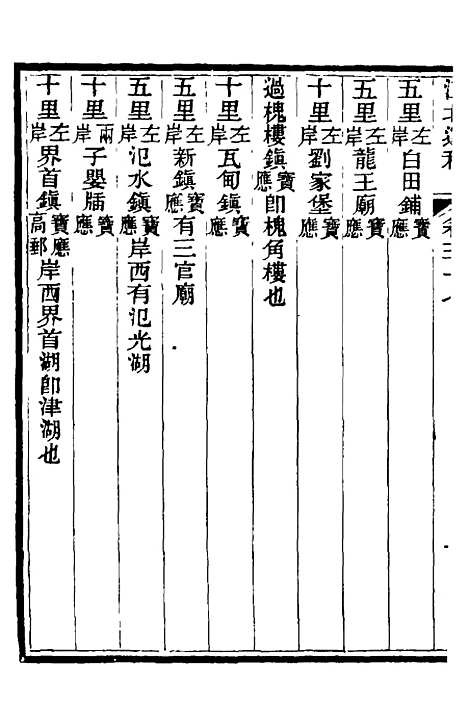 五里左岸白田鋪寶應
五里左岸龍王廟寶應
十里左岸劉家堡寶應
過槐樓鎮寶應卽槐角樓也
十里左岸瓦甸鎮寶應
五里左岸新鎮寶應有三官廟
五里左岸氾水鎮寶應岸西有氾光湖
十里兩岸子嬰牐寶應
十里左岸界首鎮寶應高郵岸西界首湖卽津湖也